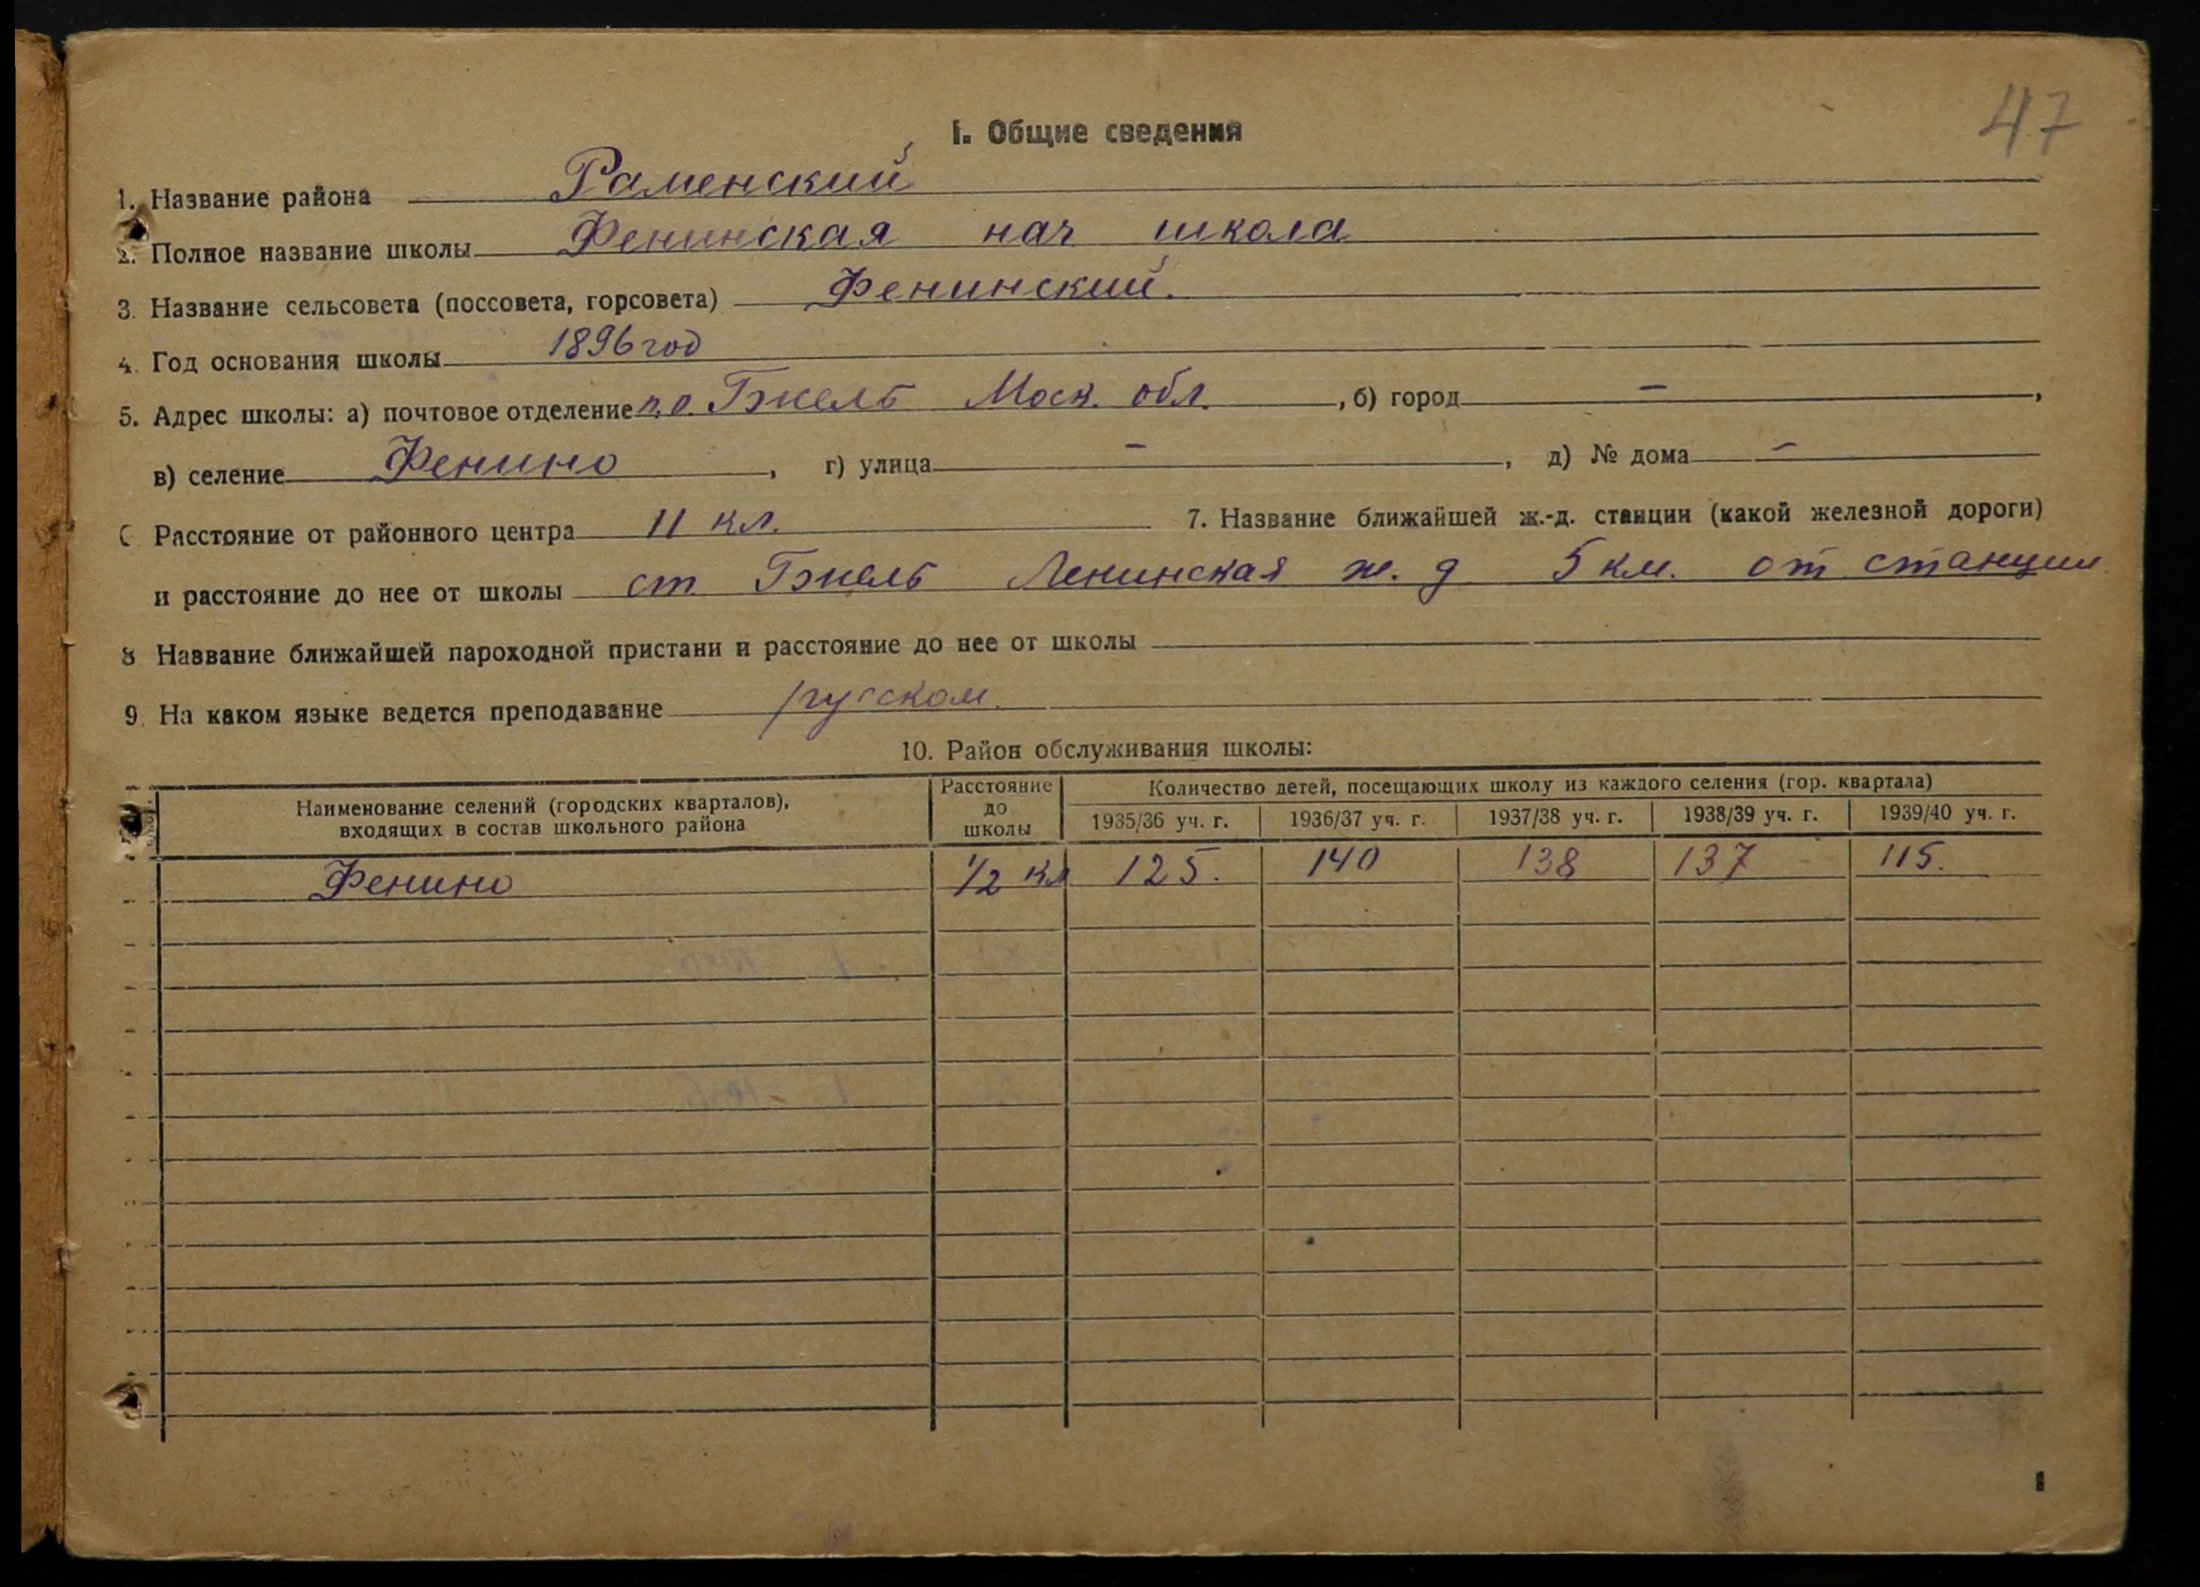 47
I. Общие сведения
1. Название района Раменский
2. Полное название школы Фенинская нач школа
3. Название сельсовета (поссовета, горсовета) Фенинский.
4. Год основания школы 1896 год
5. Адрес школы: а) почтовое отделение п.о. Гжель Моск. обл. , б) город — ,
в) селение Фенино , г) улица — , д) № дома —
Расстояние от районного центра 11 кл. 7. Название ближайшей ж.-д. станции (какой железной дороги)
и расстояние до нее от школы ст. Гжель Ленинская ж. д 5 км. от станции
8 Название ближайшей пароходной пристани и расстояние до нее от школы
9. На каком языке ведется преподавание русском.
10. Район обслуживания школы:
Наименование селений (городских кварталов), входящих в состав школьного района
Расстояние до школы
Количество детей, посещающих школу из каждого селения (гор. квартала)
1935/36 уч. г. 1936/37 уч. г. 1937/38 уч. г. 1938/39 уч. г. 1939/40 уч. г.
Фенино 1/2 кл 125. 140 138 137 115.